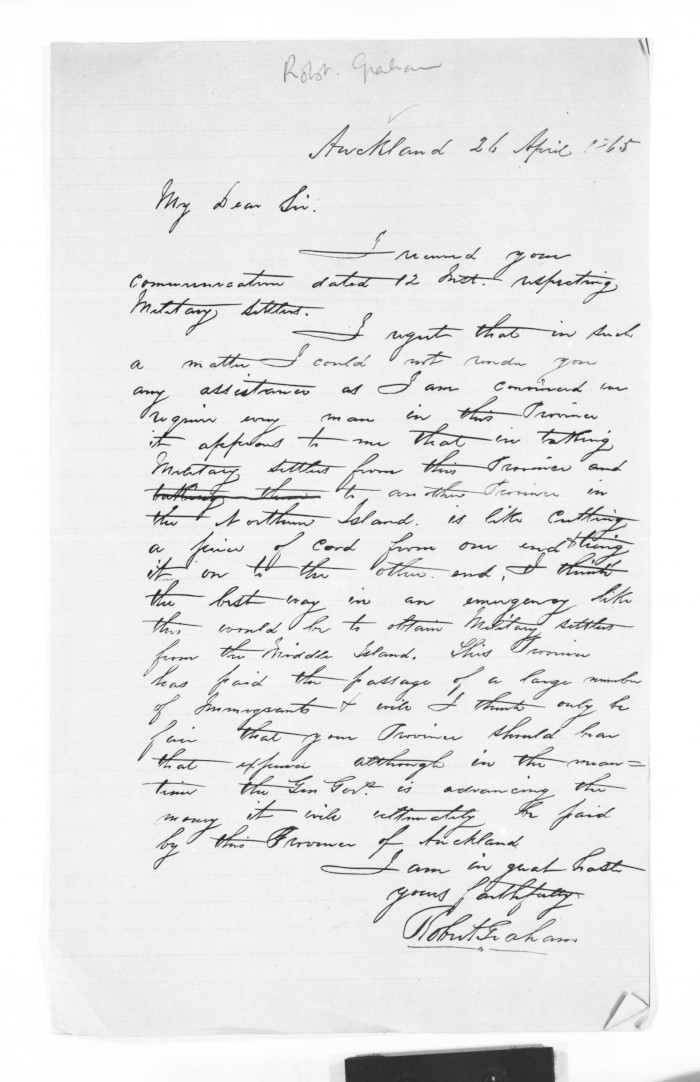 Robt. Graham
Auckland 26 April 1865
My Dear Sir.
I received your
communication dated 12 Inst. respecting
Military settlers.
I regret that in such
a matter I could not render you
any assistance as I am convinced we
require every man in this Province
it appears to me that in taking
Military settlers from this Province and
taking them to another Province in
the Northern Island. is like cutting
a piece of cord from one end & tieing
it on to the other end, I think
the best way in an emergency like
this would be to obtain Military settlers
from the Middle Island. This Province
has paid the passage of a large number
of Immigrants & will I think only be
fair that your Province should bear
that expense although in the mean=
time the Gen Govt. is advancing the
money it will ultimately be paid
by this Province of Auckland
I am in great haste
yours faithfully
Robert Graham